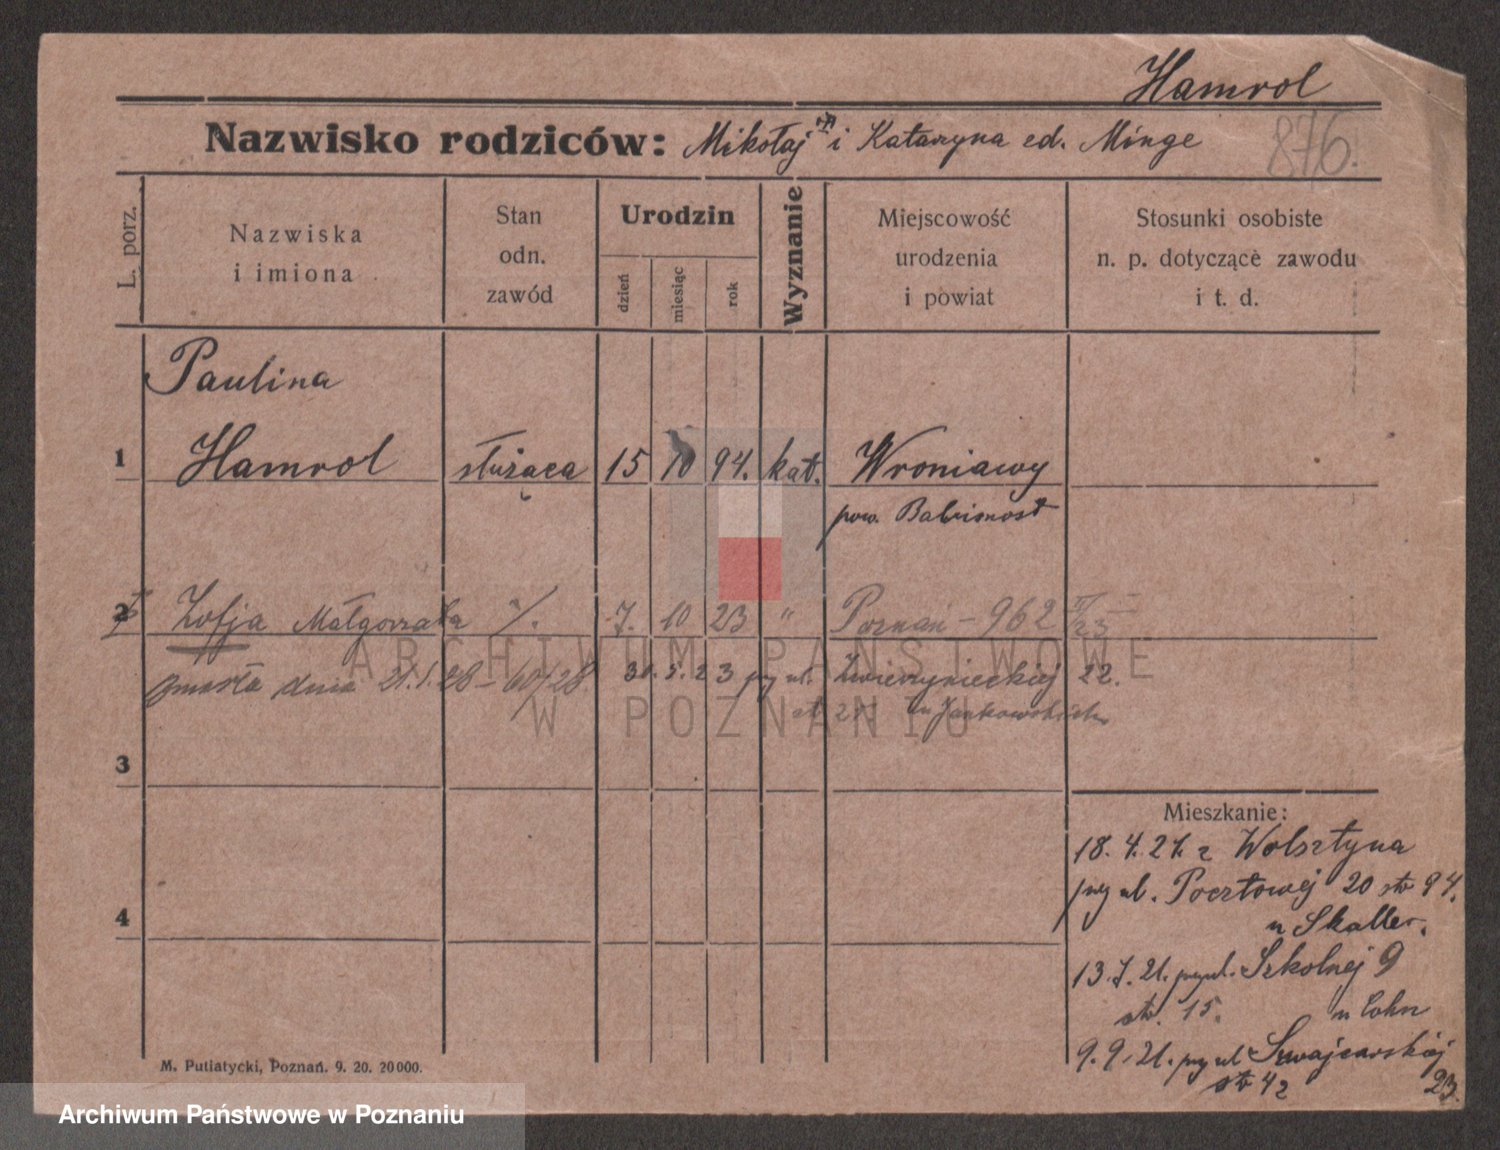 Hamrol
Nazwisko rodziców: Mikołaj i Katarzyna ed. Minge
876.
L. porz.
Nazwiska
i imiona
Stan
odn.
zawód
Urodzin
dzień
miesiąc
rok
Wyznanie
Miejscowość
urodzenia
i powiat
Stosunki osobiste
n. p. dotyczące zawodu
i t. d.
Paulina
1 Hamrol służąca 15 10 94. kat. Wroniawy
pow. Babimost
2 Zofja Małgorzata 7. 10 23 " Poznań - 962
zmarła dnia 21.1.28 - 60/28 31.5.23 przy ul. Zwierzynieckiej 22.
u Jankowskich
ARCHIWUM PAŃSTWOWE
W POZNANIU
3
Mieszkanie:
18. 4. 21. z Wolsztyna
przy ul. Pocztowej 20 str 94.
u Skaller.
4
13. 7. 21. przy ul. Szkolnej 9
str. 15. u Cohn
9. 9. 21. przy ul Szwajcarskiej
str 42 23.
M. Putiatycki, Poznań. 9. 20. 20000.
Archiwum Państwowe w Poznaniu